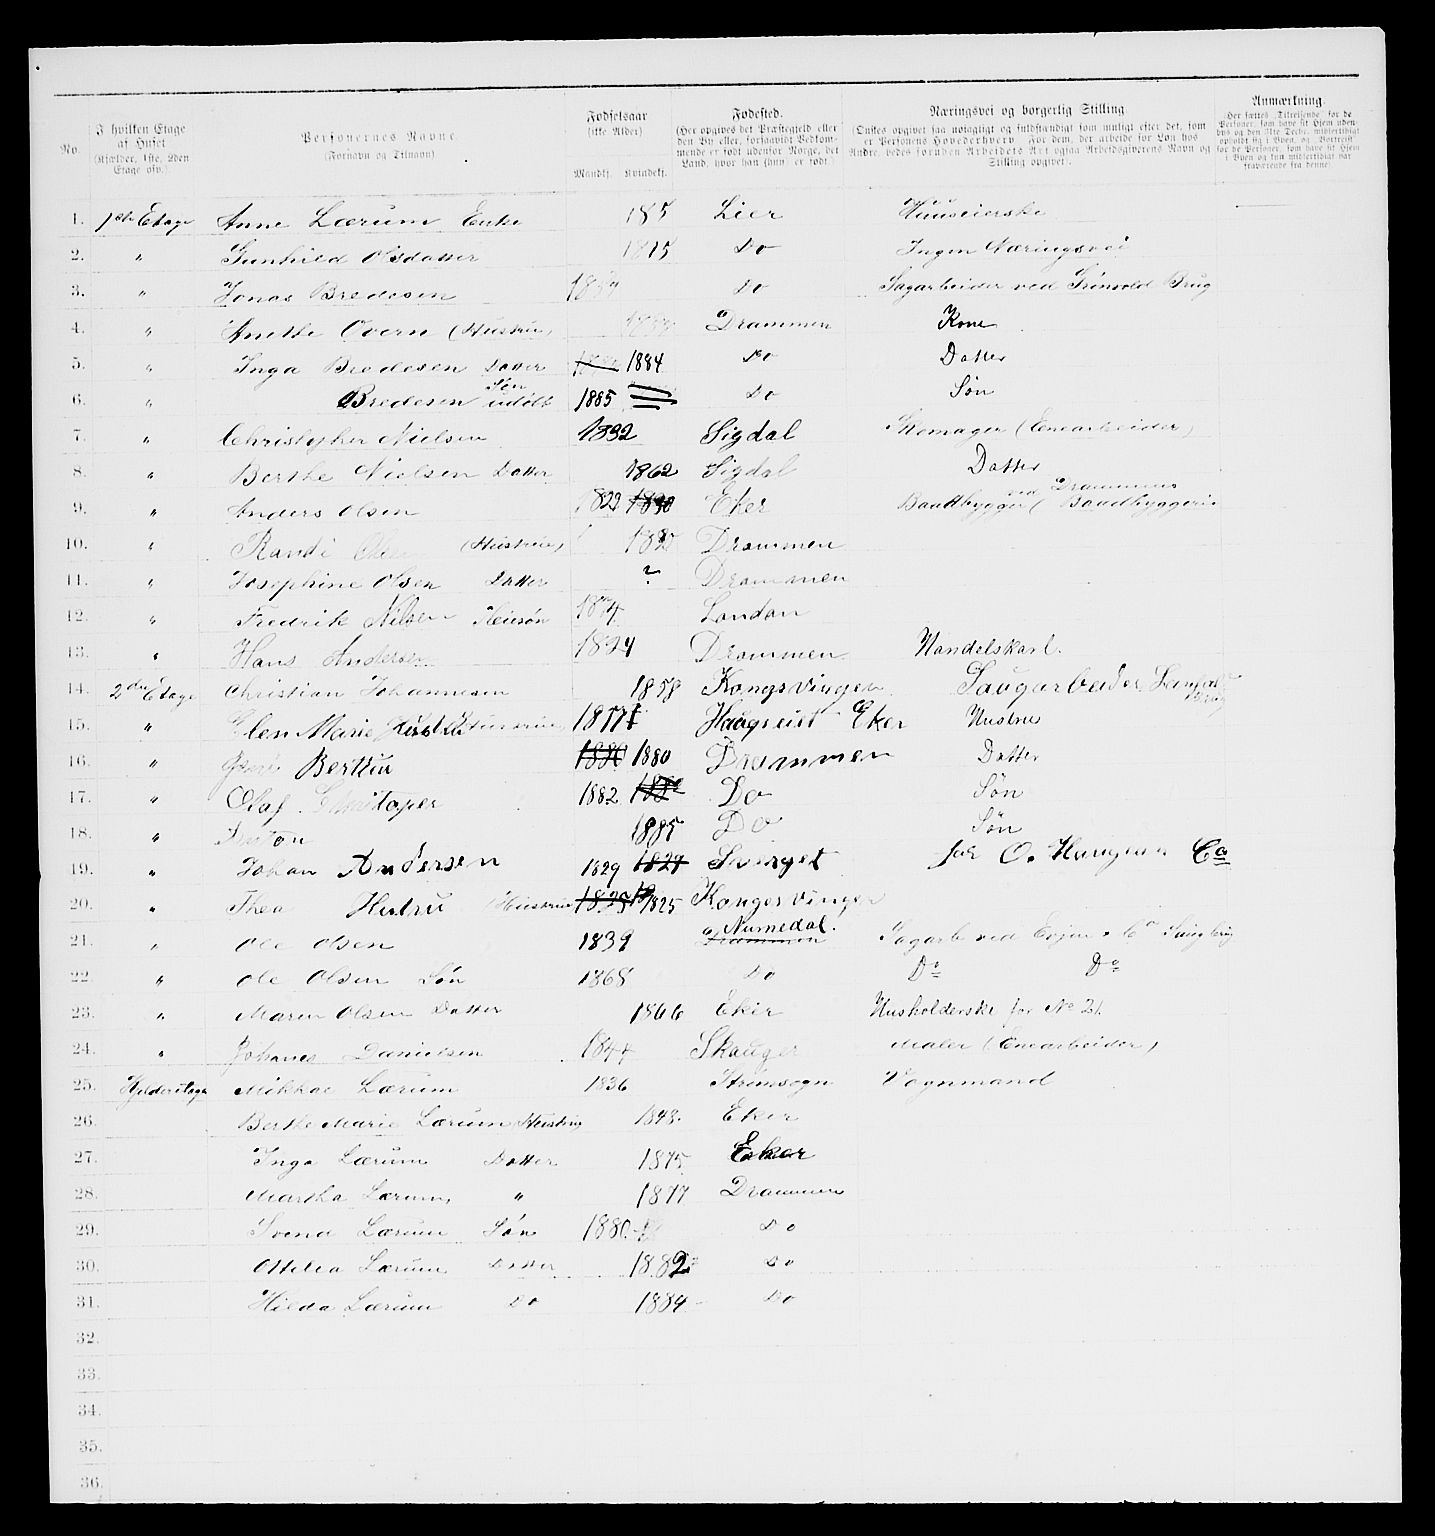 No.
I hvilken Etage af Huset (Kjælder, 1ste, 2den Etage osv.).
Personernes Navne. (Fornavn og Tilnavn)
Fødselsaar (ikke Alder) Mandkj. Kvindekj.
Fødested. (Her opgives det Præstegjeld eller den By eller, forsaavidt Vedkommende er født udenfor Norge, det Land, hvor han (hun) er født.)
Næringsvei og borgerlig Stilling. (Ønskes opgivet saa nøiagtigt og fuldstændigt som muligt efter det, som er Personens Hovederhverv. For dem, der arbeide for Løn hos Andre, bedes foruden Arbeidets Art ogsaa Arbeidsgiverens Navn og Stilling opgivet).
Anmærkning.
1. 1ste Etage Anne Lærum Enke 185 Lier Huuseierske
2. " Gunhild Olsdatter 1815 Do Ingen Næringsvei
3. " Jonas Bredesen Do Sagarbeider ved Grinvold Brug
4. " Anethe Overn (Hustru) Drammen Kone
5. " Inga Bredesen Datter 1884 Do Datter
6. " Bredesen Søn udøbt 1885 Do Søn
7. " Christopher Nielsen 1832 Sigdal Skomager (Enearbeider)
8. " Berthe Nielsen Datter 1862 Sigdal Datter
9. " Anders Olsen 1829 1830 Eker Baadbygger (ved Drammens Baadbyggeri
10. " Randi (Hustru) Drammen
11. " Josephine Olsen Datter ? Drammen
12. " Fredrik Nilsen Pleiesøn 1874 London
13. " Hans Andersen 1824 Drammen Handelskarl.
14. 2den Etage Christian Johannesen 1858 Kongsvinger Saugarbeider
15. " Elen Marie Hustru 1857 Eker Hustru
16. " Berthin 1880 Drammen Datter
17. " Olaf 1882 Do Søn
18. " Anton 1885 Do Søn
19. " Johan Andersen 1829 1827 for O. Co
20. " Thea Hustru (Hustru 1825 Kongsvinger
21. " Ole Olsen 1839 Drammen Numedal. Sagarb ved
22. " Ole Olsen Søn 1868 Do Do Do
23. " Maren Olsen Datter 1866 Eker Husholderske for No 21.
24. " Johanes Danielsen 1844 Skauger Maler (Enearbeider)
25. Kjelderetage Mikkal Lærum 1836 Strømsogn Vognmand
26. Berthe Marie Lærum Hustru 1848. Eker
27. Inga Lærum Datter 1875 Eker
28. Martha Lærum " 1877 Drammen
29. Svend Lærum Søn 1880 Do
30. Otilia Lærum Datter 1882 Do
31. Hilda Lærum Do 1884 Do
32.
33.
34.
35.
36.